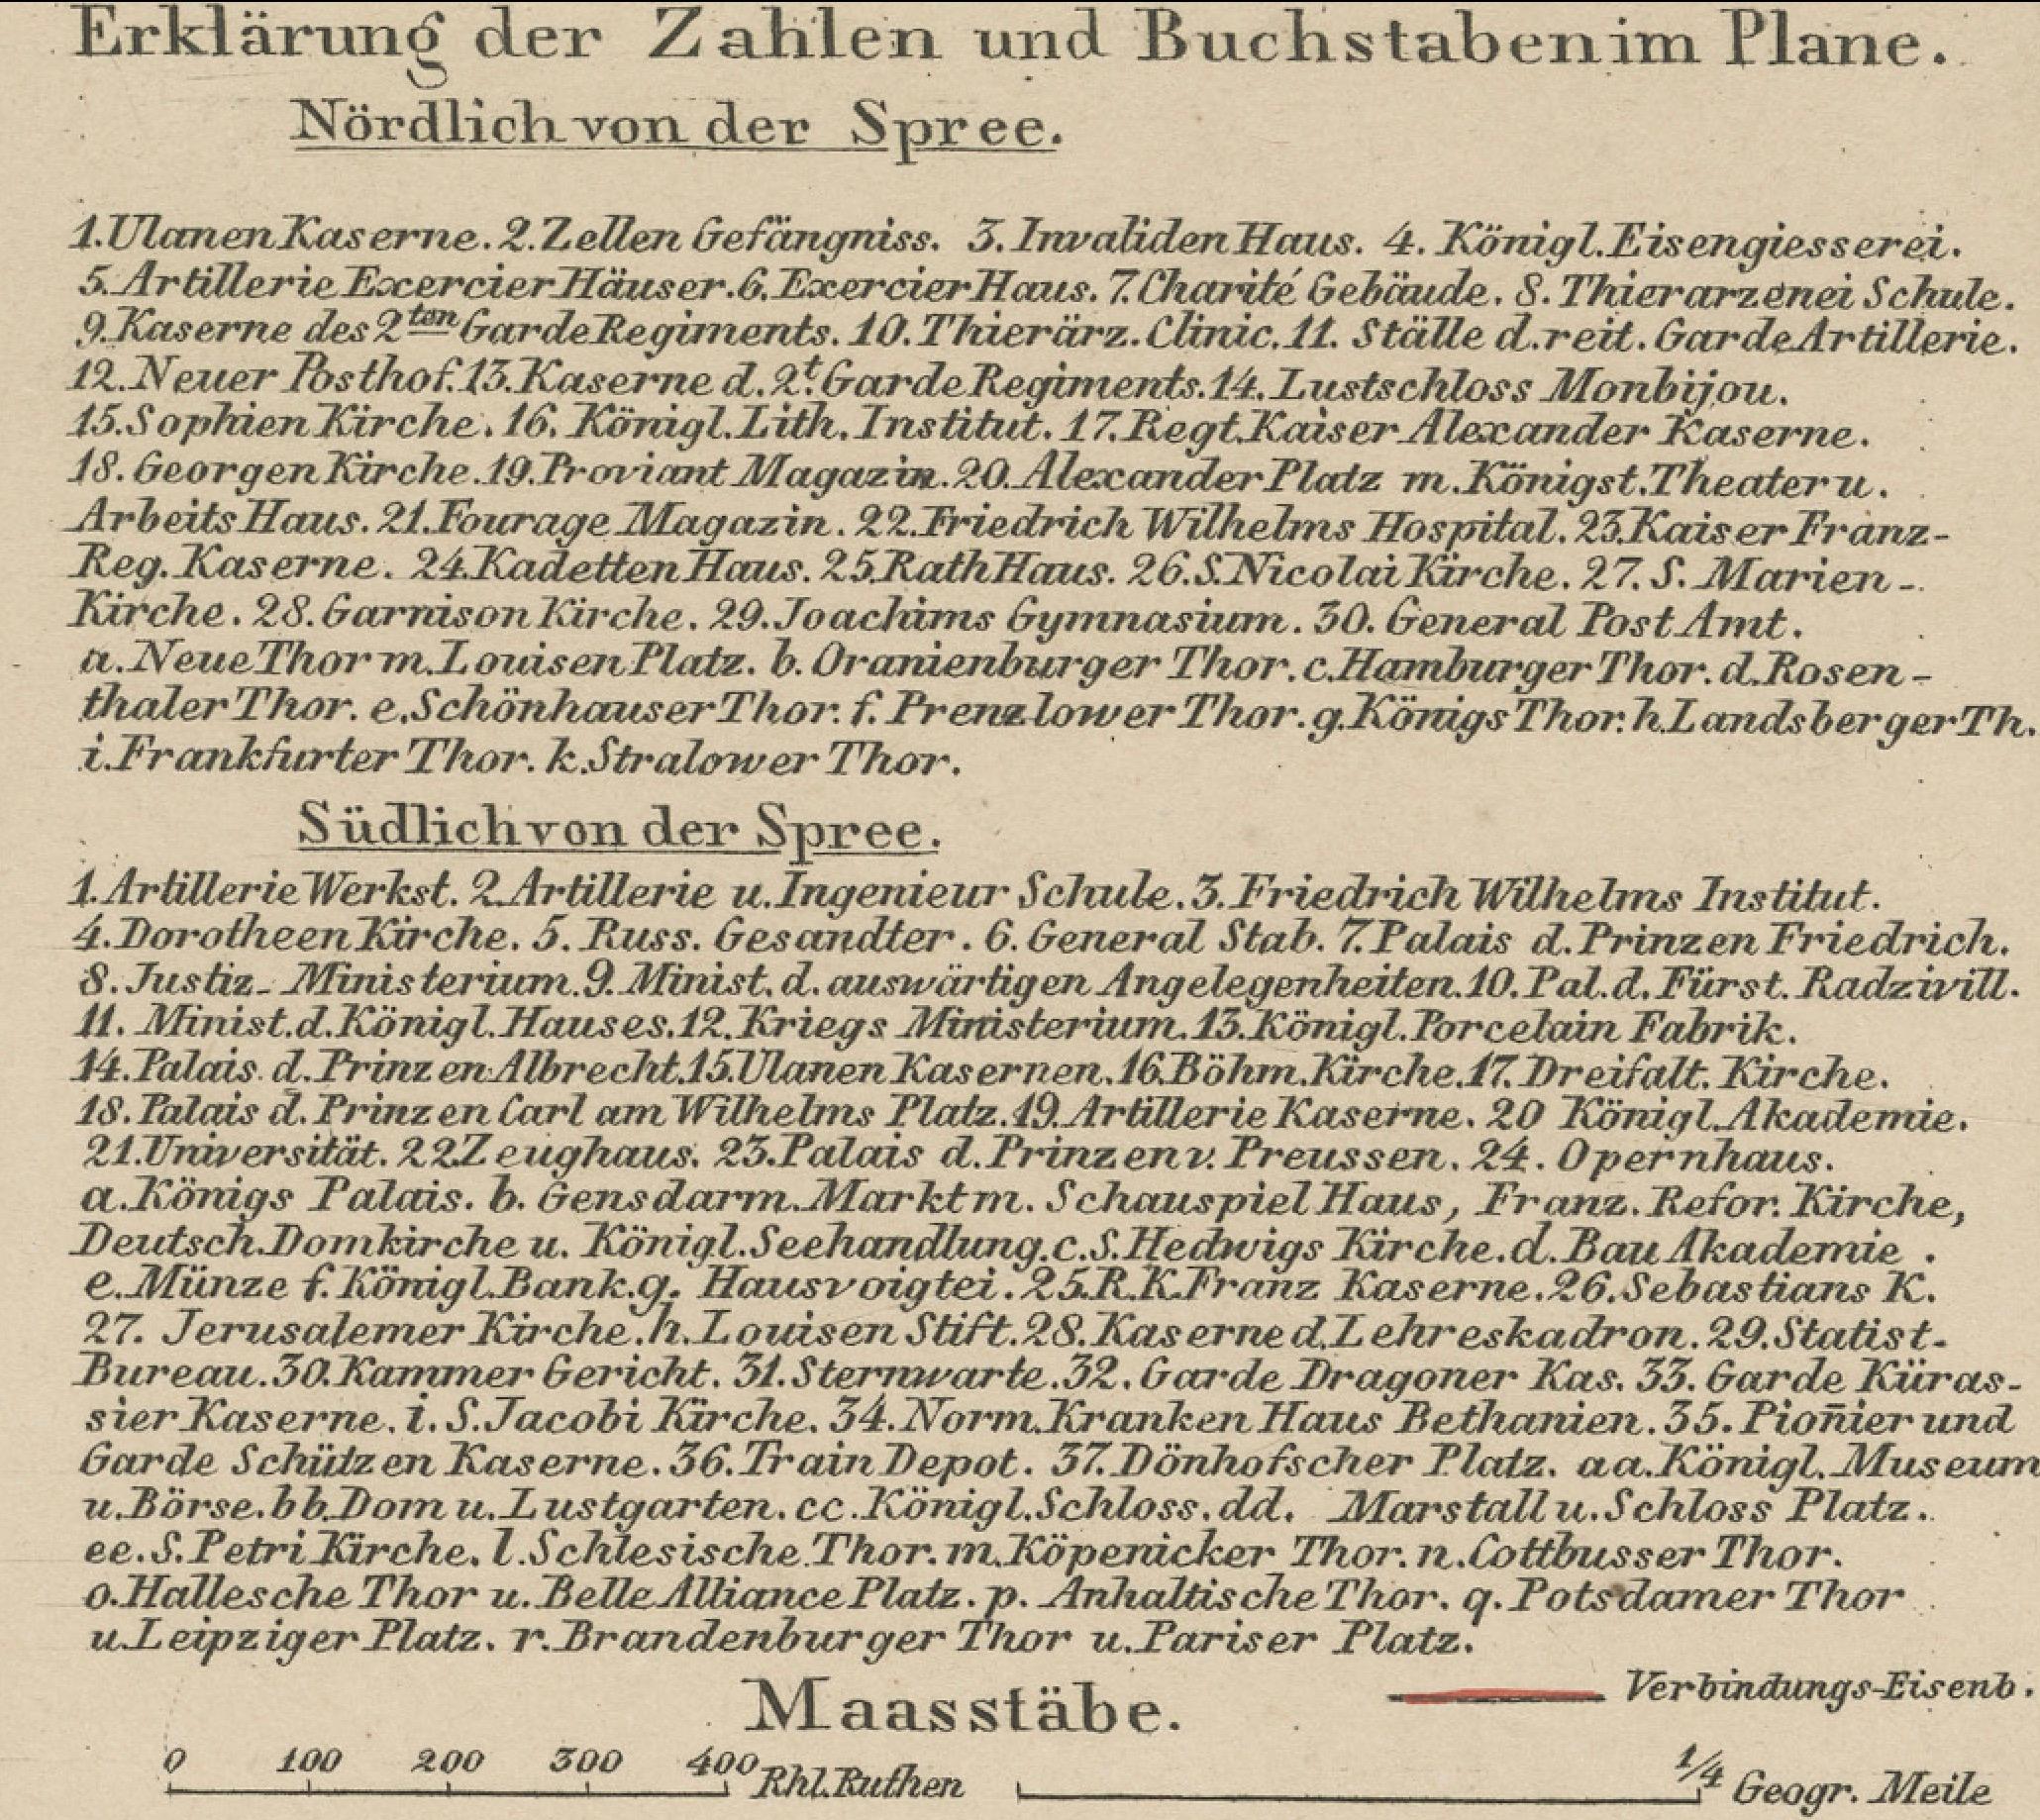 Erklärung der Zahlen und Buchstaben im Plane.
Nördlich von der Spree.
1. Ulanen Kaserne. 2. Zellen Gefängniss. 3. Invaliden Haus. 4. Königl. Eisengiesserei.
5. Artillerie Exercier Häuser. 6. Exercier Haus. 7. Charité Gebäude. 8. Thierarzenei Schule.
9. Kaserne des 2ten Garde Regiments. 10. Thierärz. Clinic. 11. Ställe d. reit. Garde Artillerie.
12. Neuer Posthof. 13. Kaserne d. 2t. Garde Regiments. 14. Lustschloss Monbijou.
15. Sophien Kirche. 16. Königl. Lith. Institut. 17. Regt. Kaiser Alexander Kaserne.
18. Georgen Kirche. 19. Proviant Magazin. 20. Alexander Platz m. Königst. Theater u.
Arbeits Haus. 21. Fourage Magazin. 22. Friedrich Wilhelms Hospital. 23. Kaiser Franz-
Reg. Kaserne. 24. Kadetten Haus. 25. Rath Haus. 26. S. Nicolai Kirche. 27. S. Marien-
Kirche. 28. Garnison Kirche. 29. Joachims Gymnasium. 30. General Post Amt.
a. Neue Thor m. Louisen Platz. b. Oranienburger Thor. c. Hamburger Thor. d. Rosen-
thaler Thor. e. Schönhauser Thor. f. Prenzlower Thor. g. Königs Thor. h. Landsberger Th.
i. Frankfurter Thor. k. Stralower Thor.
Südlich von der Spree.
1. Artillerie Werkst. 2. Artillerie u. Ingenieur Schule. 3. Friedrich Wilhelms Institut.
4. Dorotheen Kirche. 5. Russ. Gesandter. 6. General Stab. 7. Palais d. Prinzen Friedrich.
8. Justiz-Ministerium. 9. Minist. d. auswärtigen Angelegenheiten. 10. Pal. d. Fürst. Radzivill.
11. Minist. d. Königl. Hauses. 12. Kriegs Ministerium. 13. Königl. Porcelain Fabrik.
14. Palais d. Prinzen Albrecht. 15. Ulanen Kasernen. 16. Böhm. Kirche. 17. Dreifalt. Kirche.
18. Palais d. Prinzen Carl am Wilhelms Platz. 19. Artillerie Kaserne. 20 Königl. Akademie.
21. Universität. 22 Zeughaus. 23. Palais d. Prinzen v. Preussen. 24. Opernhaus.
a. Königs Palais. b. Gensdarm. Markt m. Schauspiel Haus, Franz. Refor. Kirche,
Deutsch. Domkirche u. Königl. Seehandlung. c. S. Hedwigs Kirche. d. Bau Akademie.
e. Münze f. Königl. Bank. g. Hausvoigtei. 25. R. K. Franz Kaserne. 26. Sebastians K.
27. Jerusalemer Kirche. h. Louisen Stift. 28. Kaserne d. Lehreskadron. 29. Statist-
Bureau. 30. Kammer Gericht. 31. Sternwarte. 32. Garde Dragoner Kas. 33. Garde Küras-
sier Kaserne. i. S. Jacobi Kirche. 34. Norm. Kranken Haus Bethanien. 35. Pioñier und
Garde Schützen Kaserne. 36. Train Depot. 37. Dönhofscher Platz. aa. Königl. Museum
u. Börse. bb. Dom u. Lustgarten. cc. Königl. Schloss. dd. Marstall u. Schloss Platz.
ee. S. Petri Kirche. l. Schlesische Thor. m. Köpenicker Thor. n. Cottbusser Thor.
o. Hallesche Thor u. Belle Alliance Platz. p. Anhaltische Thor. q. Potsdamer Thor
u. Leipziger Platz. r. Brandenburger Thor u. Pariser Platz.
Verbindungs-Eisenb.
Maasstäbe.
0 100 200 300 400 Rhl. Ruthen
1/4 Geogr. Meile